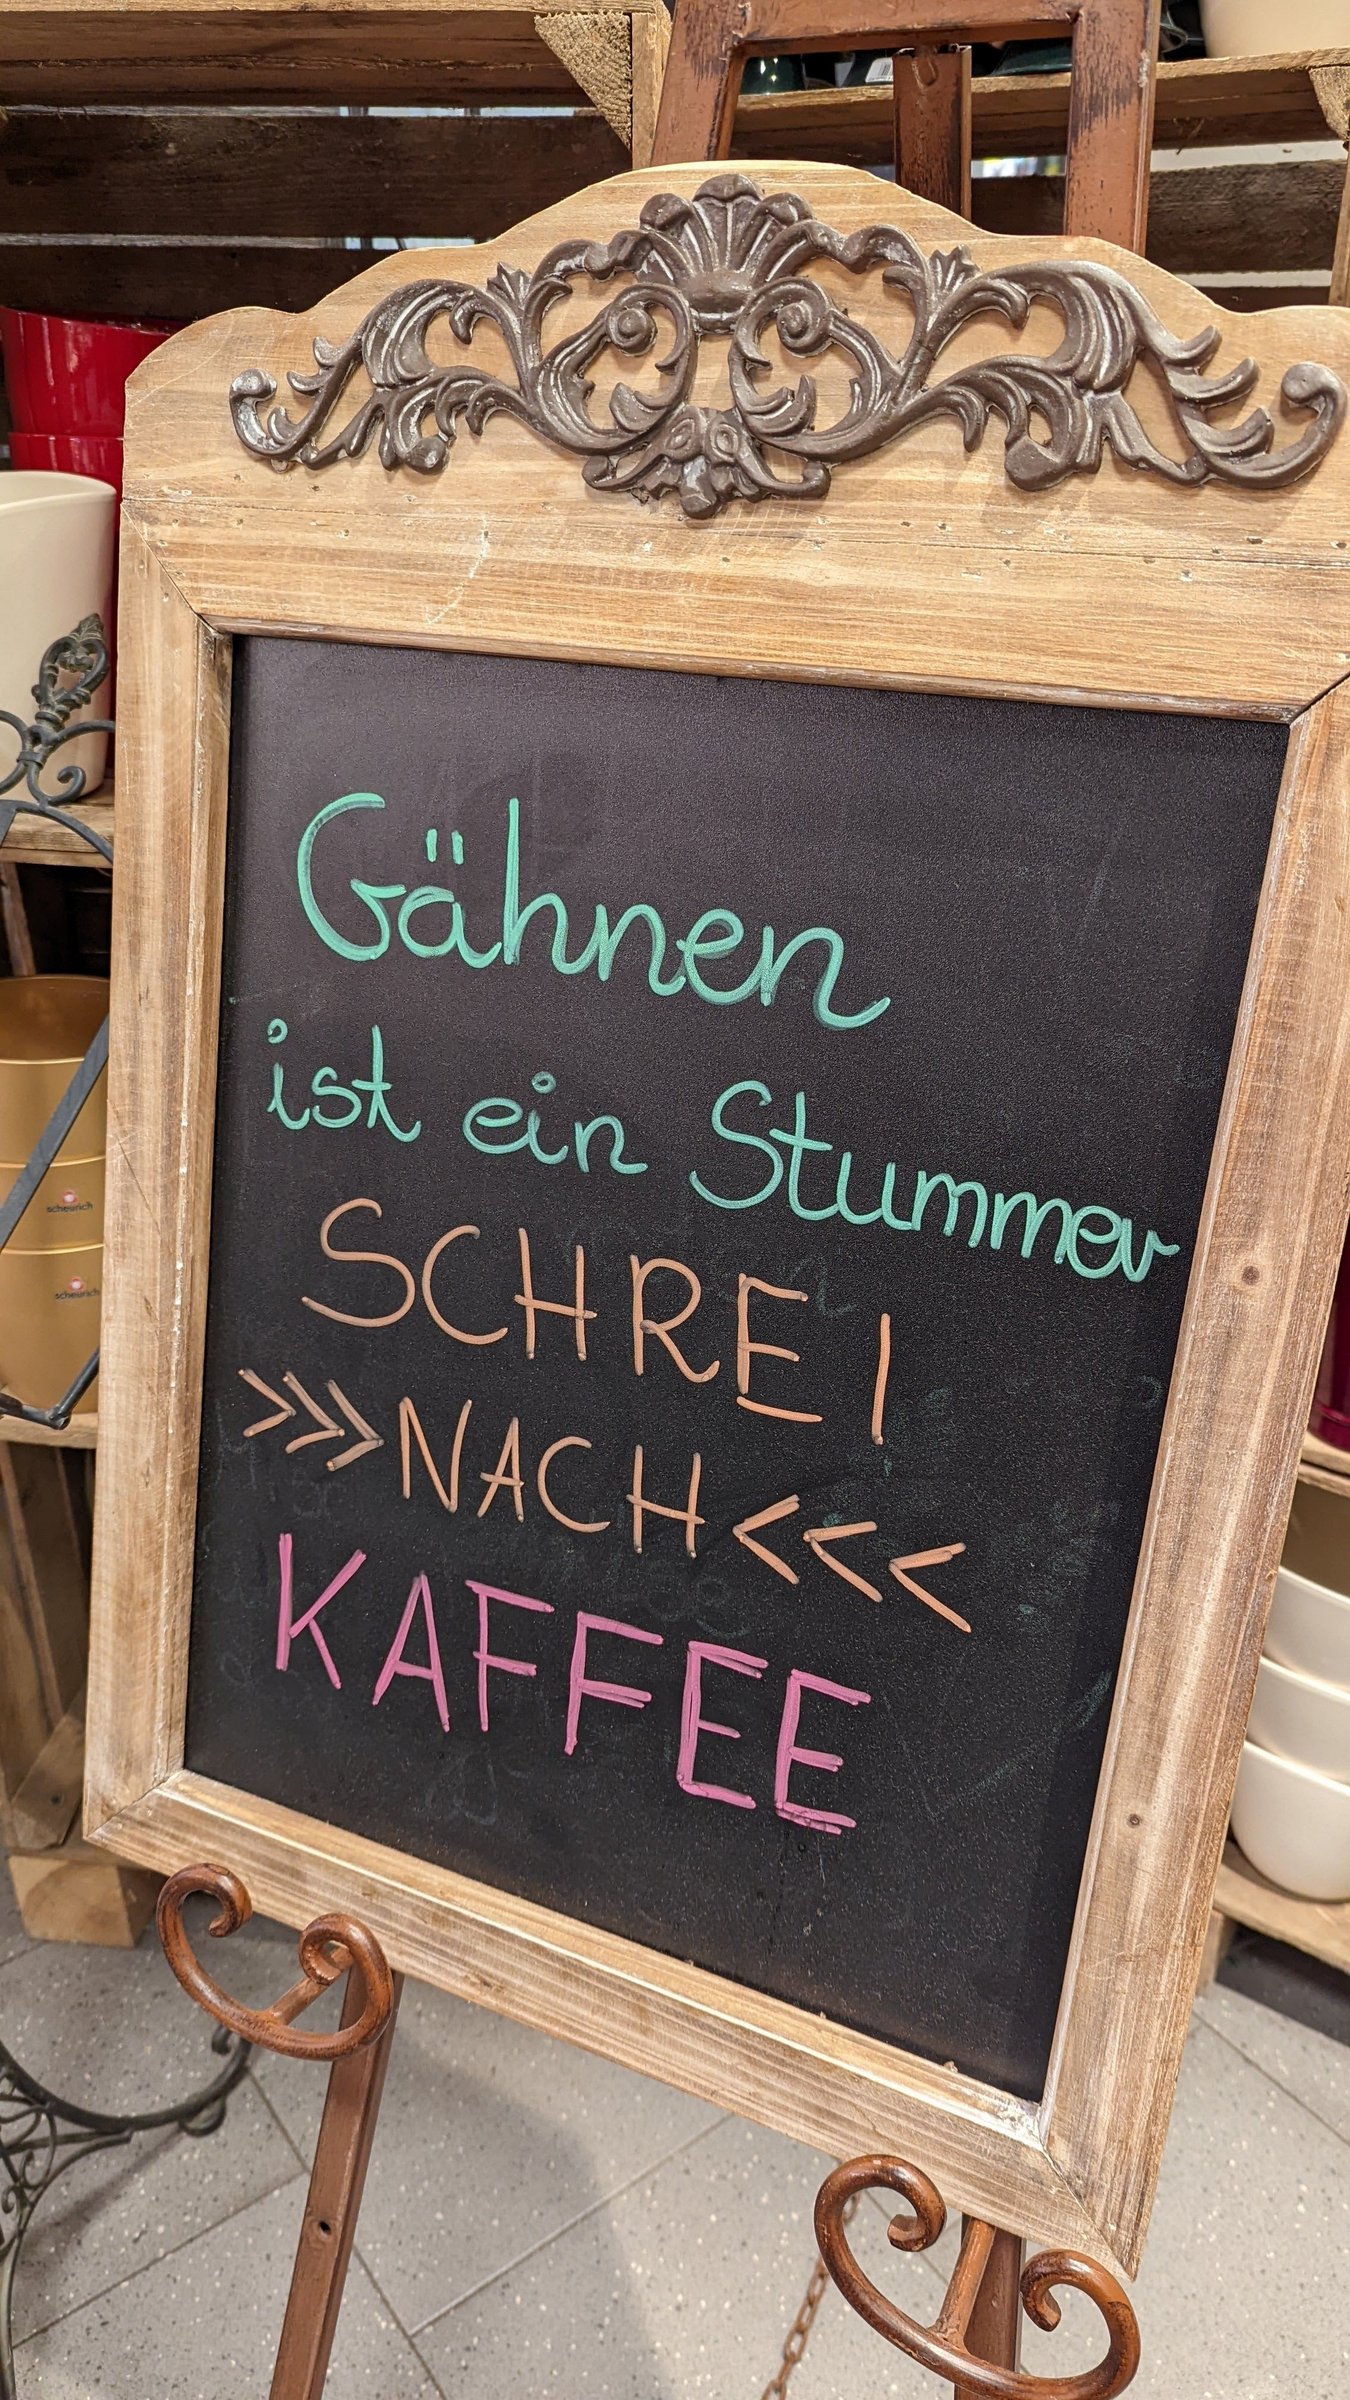 Gähnen
ist ein Stummer
SCHREI
>>> NACH <<<
KAFFEE
scheurich
scheurich